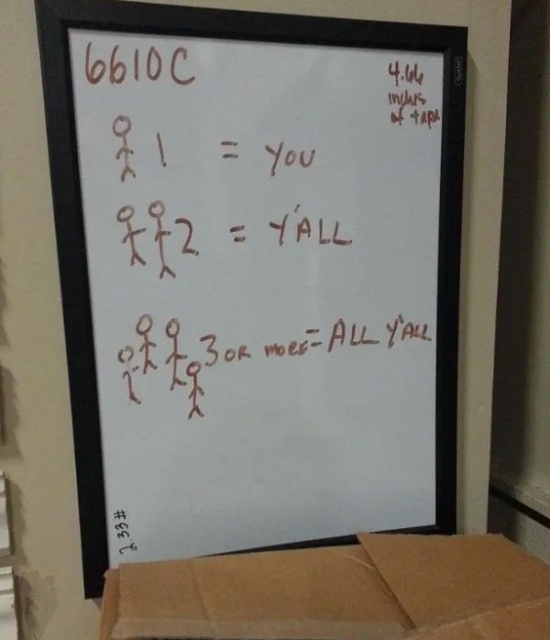 6610C
4.66
inches
of tape
1 = YOU
2 = Y'ALL
3 OR MORE = ALL Y'ALL
2.33#